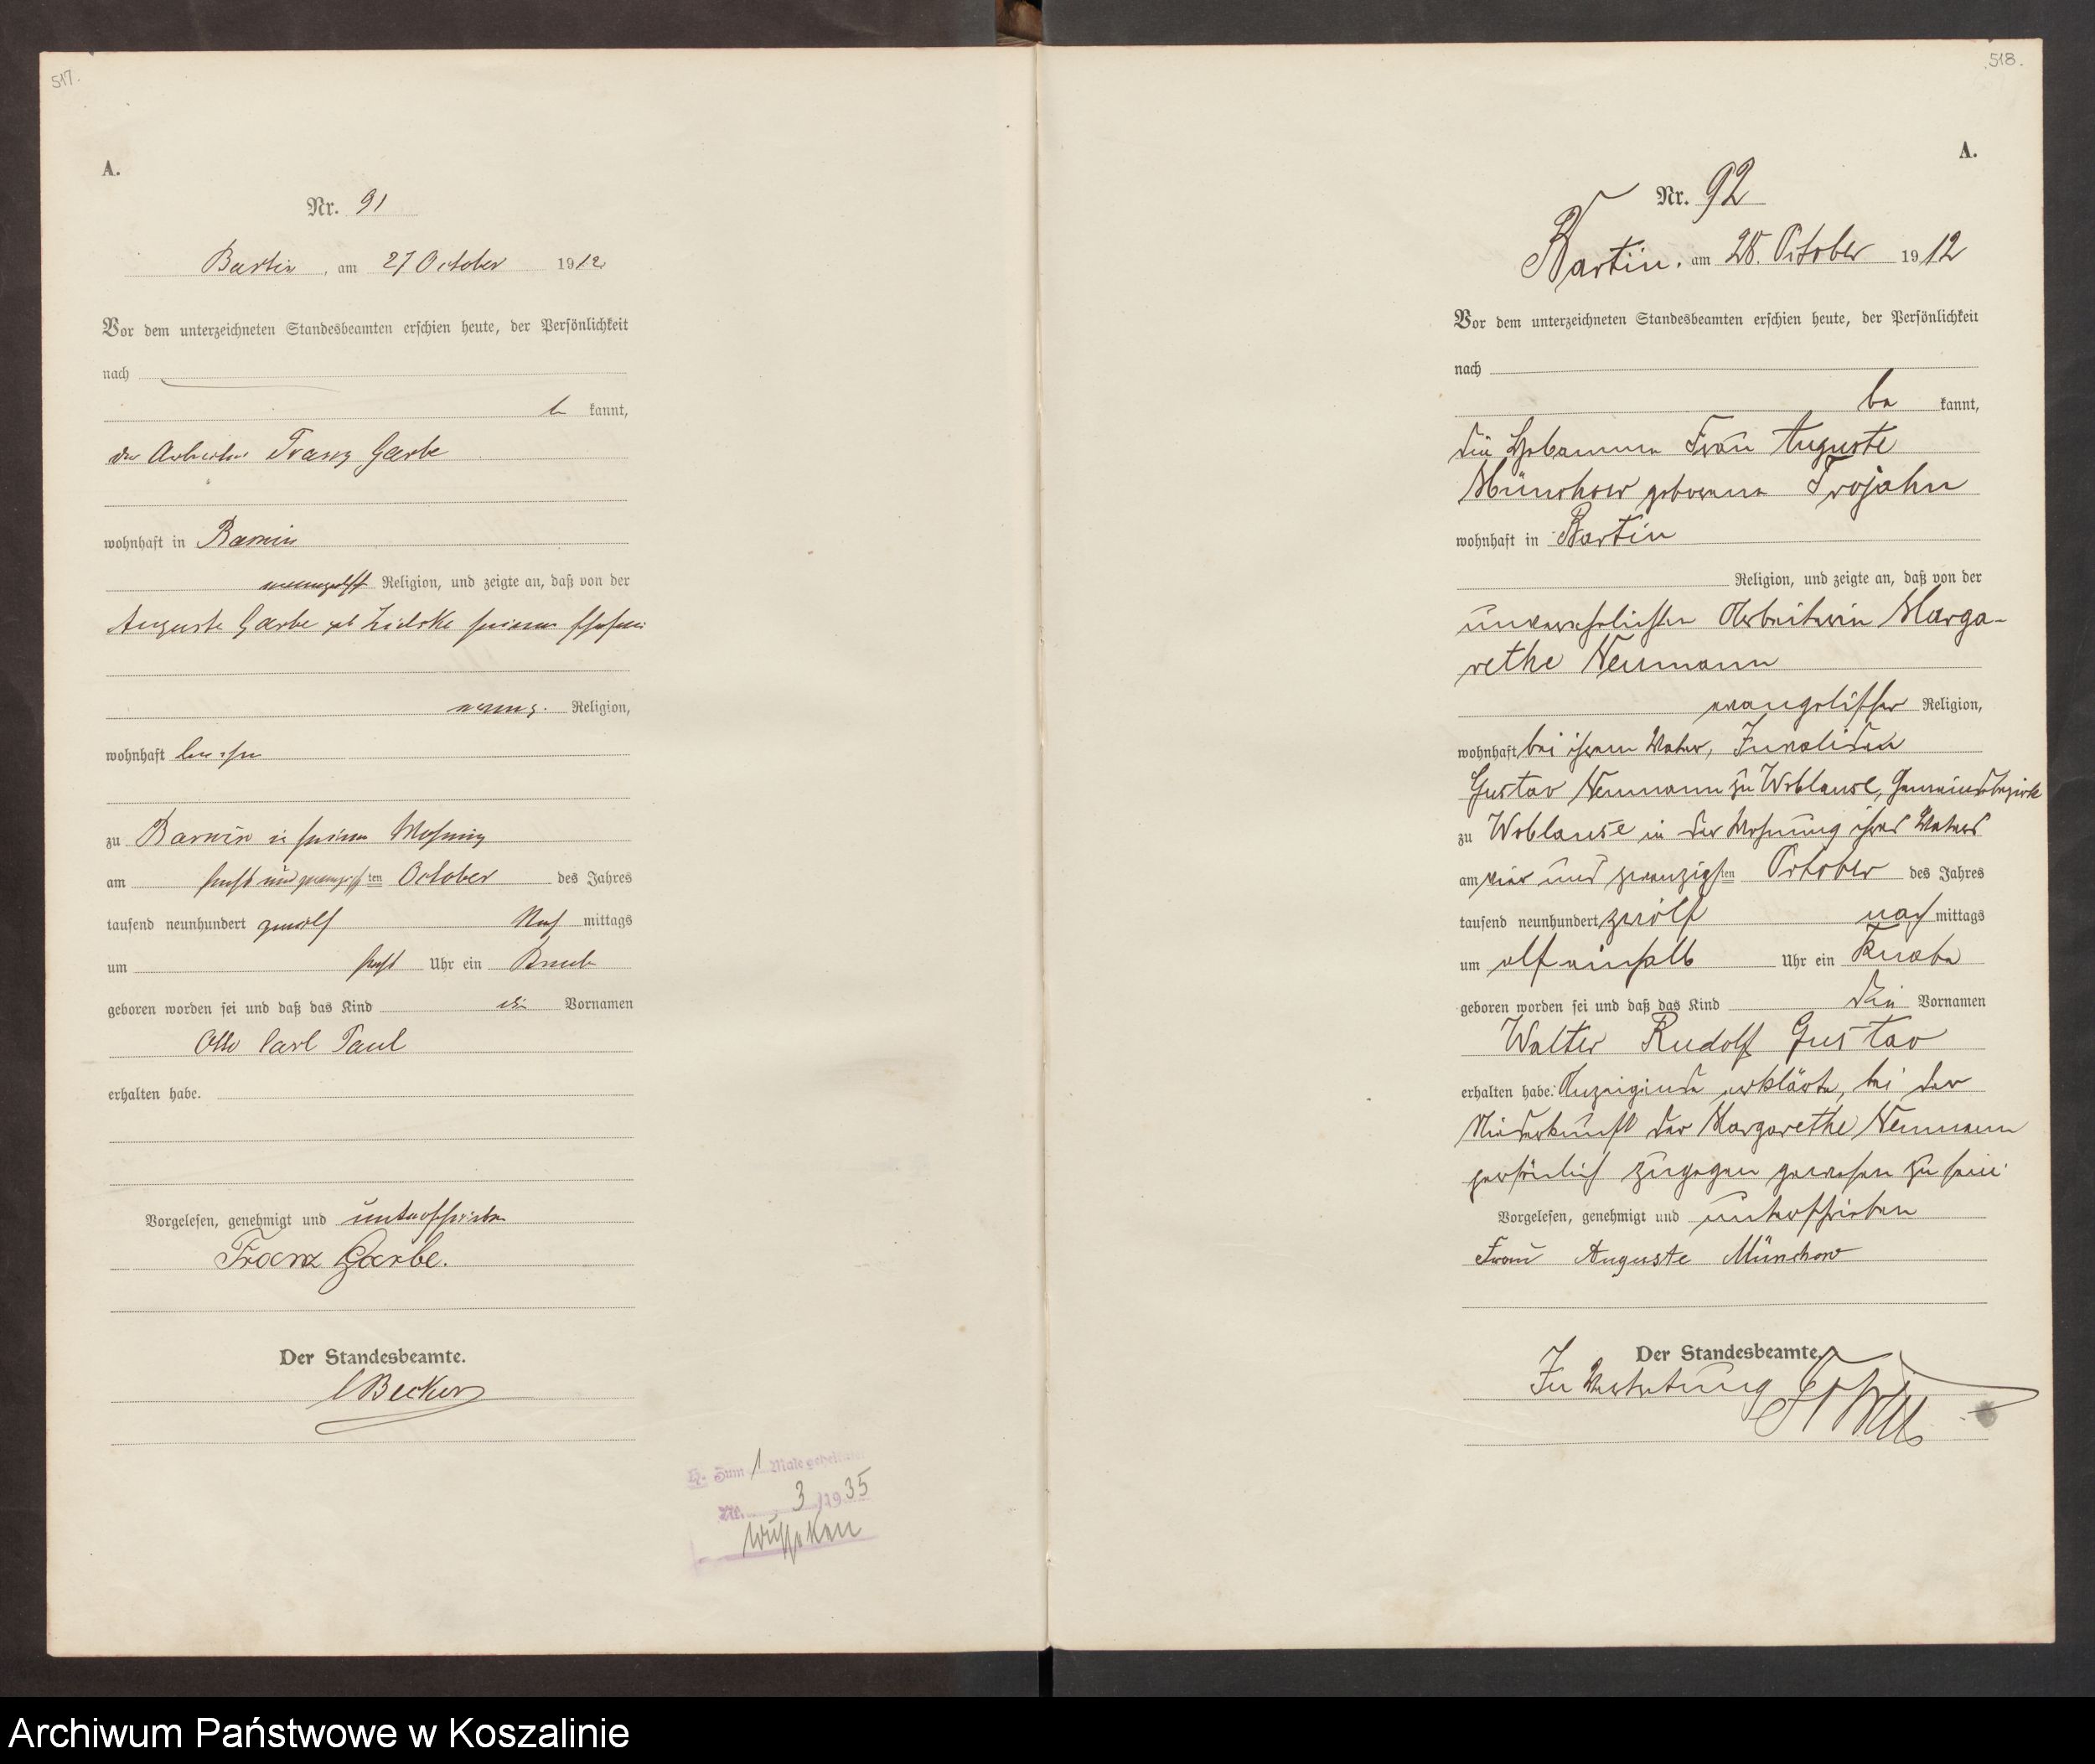 517.
A.
Nr. 91
Bartin, am 27 October 1912
Vor dem unterzeichneten Standesbeamten erschien heute, der Persönlichkeit
nach
be kannt,
der Arbeiter Franz Garbe
wohnhaft in Barnin
evangelisch Religion, und zeigte an, daß von der
Auguste Garbe geb Zielske seiner Ehefrau
evang. Religion,
wohnhaft bei ihm
zu Barnin in seiner Wohnung
am sechs und zwanzigsten October des Jahres
tausend neunhundert zwölf Nach mittags
um sechs Uhr ein Knabe
geboren worden sei und daß das Kind die Vornamen
Otto Carl Paul
erhalten habe.
Vorgelesen, genehmigt und unterschrieben
Franz Garbe.
Der Standesbeamte.
Becker
H. Zum 1 Male geheiratet
Nr. 3/1935
Wusseken
518.
A.
Nr. 92
Bartin, am 28. October 1912
Vor dem unterzeichneten Standesbeamten erschien heute, der Persönlichkeit
nach
be kannt,
die Hebamme Frau Auguste
Münchow geborene Trojahn
wohnhaft in Bartin
Religion, und zeigte an, daß von der
unverehelichten Arbeiterin Marga-
rethe Neumann
evangelischer Religion,
wohnhaft bei ihrem Vater, Invaliden
Gustav Neumann zu Woblanse, Gemeindebezirk
zu Woblanse in der Wohnung ihres Vaters
am vier und zwanzigsten October des Jahres
tausend neunhundert zwölf nach mittags
um elf einhalb Uhr ein Knabe
geboren worden sei und daß das Kind die Vornamen
Walter Rudolf Gustav
erhalten habe. Anzeigende erklärte, bei der
Niederkunft der Margarethe Neumann
persönlich zugegen gewesen zu sein.
Vorgelesen, genehmigt und unterschrieben
Frau Auguste Münchow
Der Standesbeamte.
In Vertretung
Archiwum Państwowe w Koszalinie